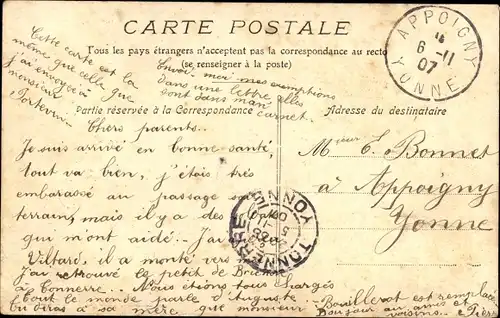 CARTE POSTALE
Tous les pays étrangers n'acceptent pas la correspondance au recto
(se renseigner à la poste)
Cette carte est la
même que celle que
j'ai envoyée à
monsieur
Envoi-moi mes exemptions
dans une lettre, elles
sont dans mon
carnet.
Partie réservée à la Correspondance
Adresse du destinataire
Chers parents...
Je suis arrivé en bonne santé,
tout va bien, j'étais très
embarassé au passage
terrain, mais il y a des
qui m'ont aidé.. J'ai
Viltard, il a monté vers
J'ai retrouvé le petit de
à Tonnerre.. Nous étions tous
tout le monde parle d'Auguste
tu diras à sa mère que monsieur
Bouillerot est remplacé
Bonjour aux amis et
voisins.. Pierre
M. E. Bonnet
à Appoigny
Yonne
APPOIGNY
6 -11
07
YONNE
TONNERRE
5 -11
07
YONNE